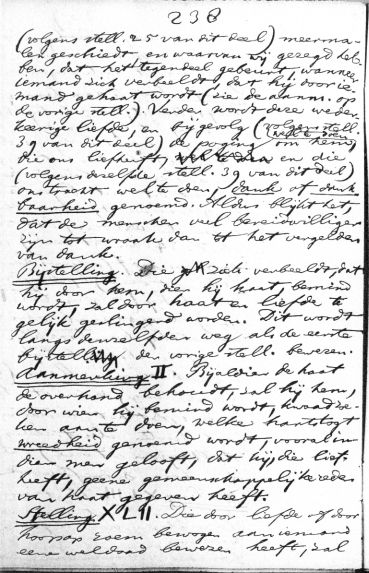 238
(volgens stell. 25 van dit deel) meerma-
len geschiedt en waarvan wij gezegd heb-
ben, dat het tegendeel gebeurt, wanneer
iemand zich verbeeldt, dat hij door ie-
mand gehaat wordt (zie de aanm. op
de vorige stell.). Verder wordt deze weder-
keerige liefde, en bijgevolg (volgens stell.
39 van dit deel) de poging om hem,
die ons liefheeft, en die
(volgens dezelfde stell. 39 van dit deel)
ons tracht wel te doen, dank of dank
baarheid genoemd. Aldus blijkt het,
dat de menschen veel bereidwilliger
zijn tot wraak dan tot het vergelden
van dank.
Bijstelling. Die zich verbeeldt, dat
hij door hem, dien hij haat, bemind
wordt, zal door haat en liefde te
gelijk geslingerd worden. Dit wordt
langs denzelfden weg als de eerste
bijstelling der vorige stell. bewezen.
Aanmerking II. Bijaldien de haat
de overhand behoudt, zal hij hem,
door wien hij bemind wordt, kwaad zoe-
ken aan te doen, welke hartstogt
wreedheid genoemd wordt, vooral in-
dien men gelooft, dat hij, die lief-
heeft, geene gemeenschappelijke reden
van haat gegeven heeft.
Stelling XLII. Die door liefde of door
hoop op roem bewogen aan iemand
eene weldaad bewezen heeft, zal